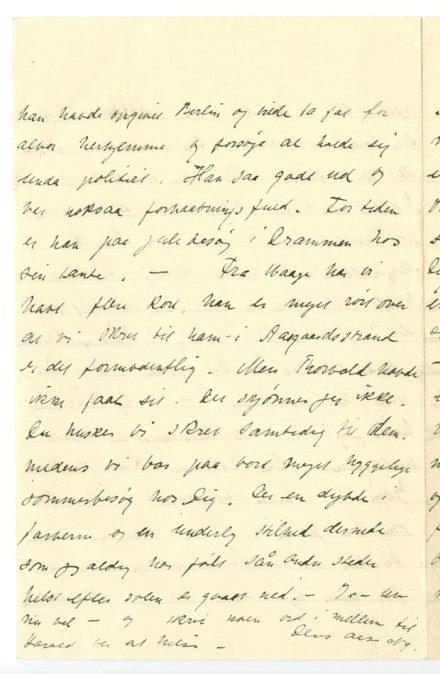 han havde opgivet Berlin og vilde ta fat for
alvor herhjemme og forsøge at holde sig
unda politiet. Han saa godt ud og
var noksaa forhaabningsfuld. For tiden
er han paa julebesøg i Drammen hos
sin tante. — Fra Waage har vi
havt flere kort, han er meget rørt over
at vi skrev til ham - i Aasgaardsstrand
er det formodentlig. Men Thorvald havde
ikke faat sit - Det skjønner jeg ikke.
Du husker vi skrev samtidig til dem.
medens vi var paa vort meget hyggelige
sommerbesøg hos Dig. Der en dybde i
farverne og en underlig stilhed dernede
som jeg aldrig har følt sån andre steder
helst efter solen er gaaet ned. — Ja - lev
nu vel - og skriv noen ord i mellem til
Harald ber at hilse — Deres